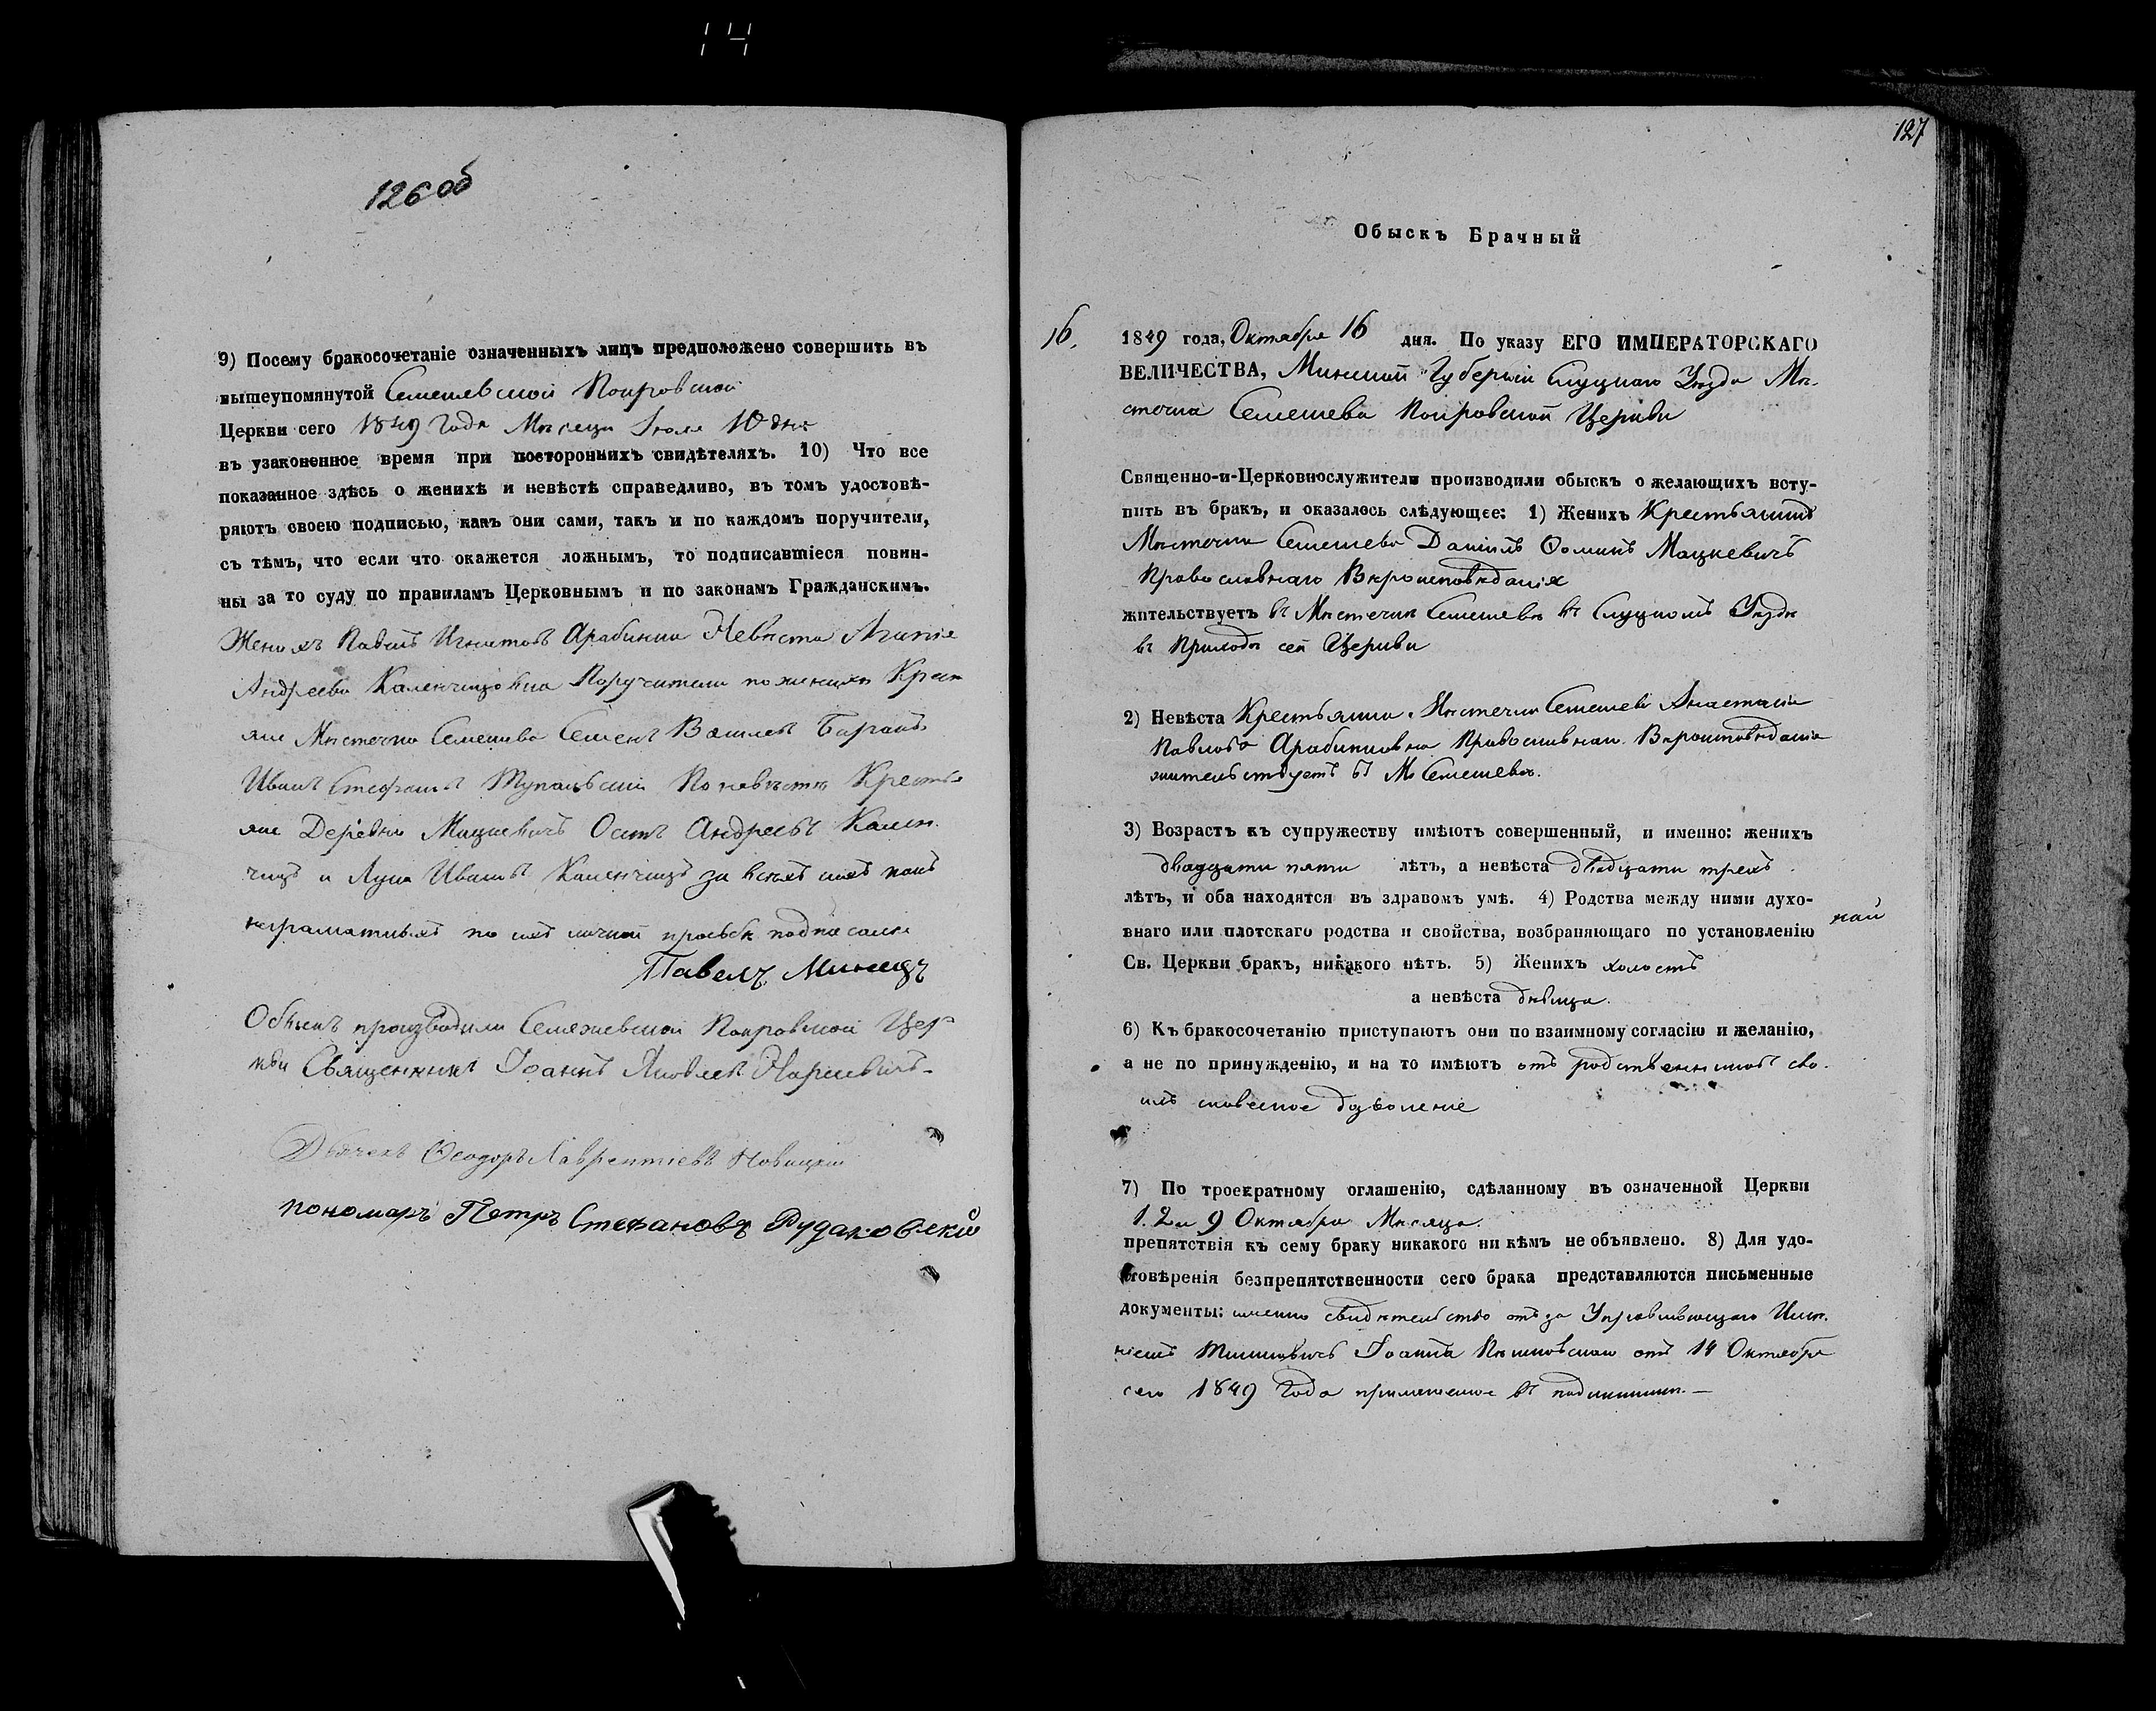 14
126 об
9) Посему бракосочетаніе означенныхъ лицъ предположено совершить въ
вышеупомянутой Семежевской Покровской
Церкви сего 1849 Года Мѣсяца Іюля 10 дня
въ узаконенное время при постороннихъ свидѣтеляхъ. 10) Что все
показанное здѣсь о женихѣ и невѣстѣ справедливо, въ томъ удостовѣ-
ряютъ своею подписью, какъ они сами, такъ и по каждомъ поручители,
съ тѣмъ, что если что окажется ложнымъ, то подписавшіеся повин-
ны за то суду по правиламъ Церковнымъ и по законамъ Гражданскимъ.
Женихъ Павелъ Игнатовъ Невѣста
Андреева Поручители по женихѣ Крестъ
яне Мѣстечка Семежева Семенъ Василевъ Баранъ
Иванъ Стефановъ По невѣстѣ Крестъ
яне Деревни Мацкевичъ Андреевъ Кален
чицъ и Лука Ивановъ Каленчицъ за всѣхъ ихъ какъ
неграматныхъ по ихъ личной прозьбѣ подписался
Павелъ Минецъ
Обыскъ производили Семежевской Покровской Цер
кви Священникъ Іоаннъ Яковлевъ
Дьячекъ Ѳеодоръ Лаврентіевъ Новицкій
пономаръ Петръ Стефановъ Рудаковскій
127
Обыскъ Брачный
16.
1849 года, Октября 16 дня. По указу ЕГО ИМПЕРАТОРСКАГО
ВЕЛИЧЕСТВА, Минской Губерніи Слуцкаго Уѣзда Мѣ-
стечка Семежева Покровской Церкви
Священно-и-Церковнослужители производили обыскъ о желающихъ всту-
пить въ бракъ, и оказалось слѣдующее: 1) Женихъ Крестьянинъ
Мѣстечка Семежева Даніилъ Ѳоминъ Мацкевичъ
Православнаго Вѣроисповѣданія
жительствуетъ въ Мѣстечкѣ Семежевѣ въ Слуцкомъ Уѣздѣ
въ Приходѣ сей Церкви
2) Невѣста Крестьянка Мѣстечка Семежева Анастасія
Павлова Православнаго Вѣроисповѣданія
жительствуетъ въ М. Семежевѣ.
3) Возрастъ къ супружеству имѣютъ совершенный, и именно: женихъ
двадцати пяти лѣтъ, а невѣста двадцати трехъ
лѣтъ, и оба находятся въ здравомъ умѣ. 4) Родства между ними духо-
внаго или плотскаго родства и свойства, возбраняющаго по установленію
Св. Церкви бракъ, никакого нѣтъ. 5) Женихъ холостъ
а невѣста дѣвица.
6) Къ бракосочетанію приступаютъ они по взаимному согласію и желанію,
а не по принужденію, и на то имѣютъ отъ родственниковъ сво-
ихъ словесное дозволеніе
7) По троекратному оглашенію, сдѣланному въ означенной Церкви
1. 2 и 9 Октября Мѣсяца.
препятствія къ сему браку никакого ни кѣмъ не объявлено. 8) Для удо-
стовѣренія безпрепятственности сего брака представляются письменные
документы: именно свидѣтельство Управляющаго Имѣ-
ніемъ Іоанна отъ 14 Октября
сего 1849 Года приложенное въ подлинникѣ.—